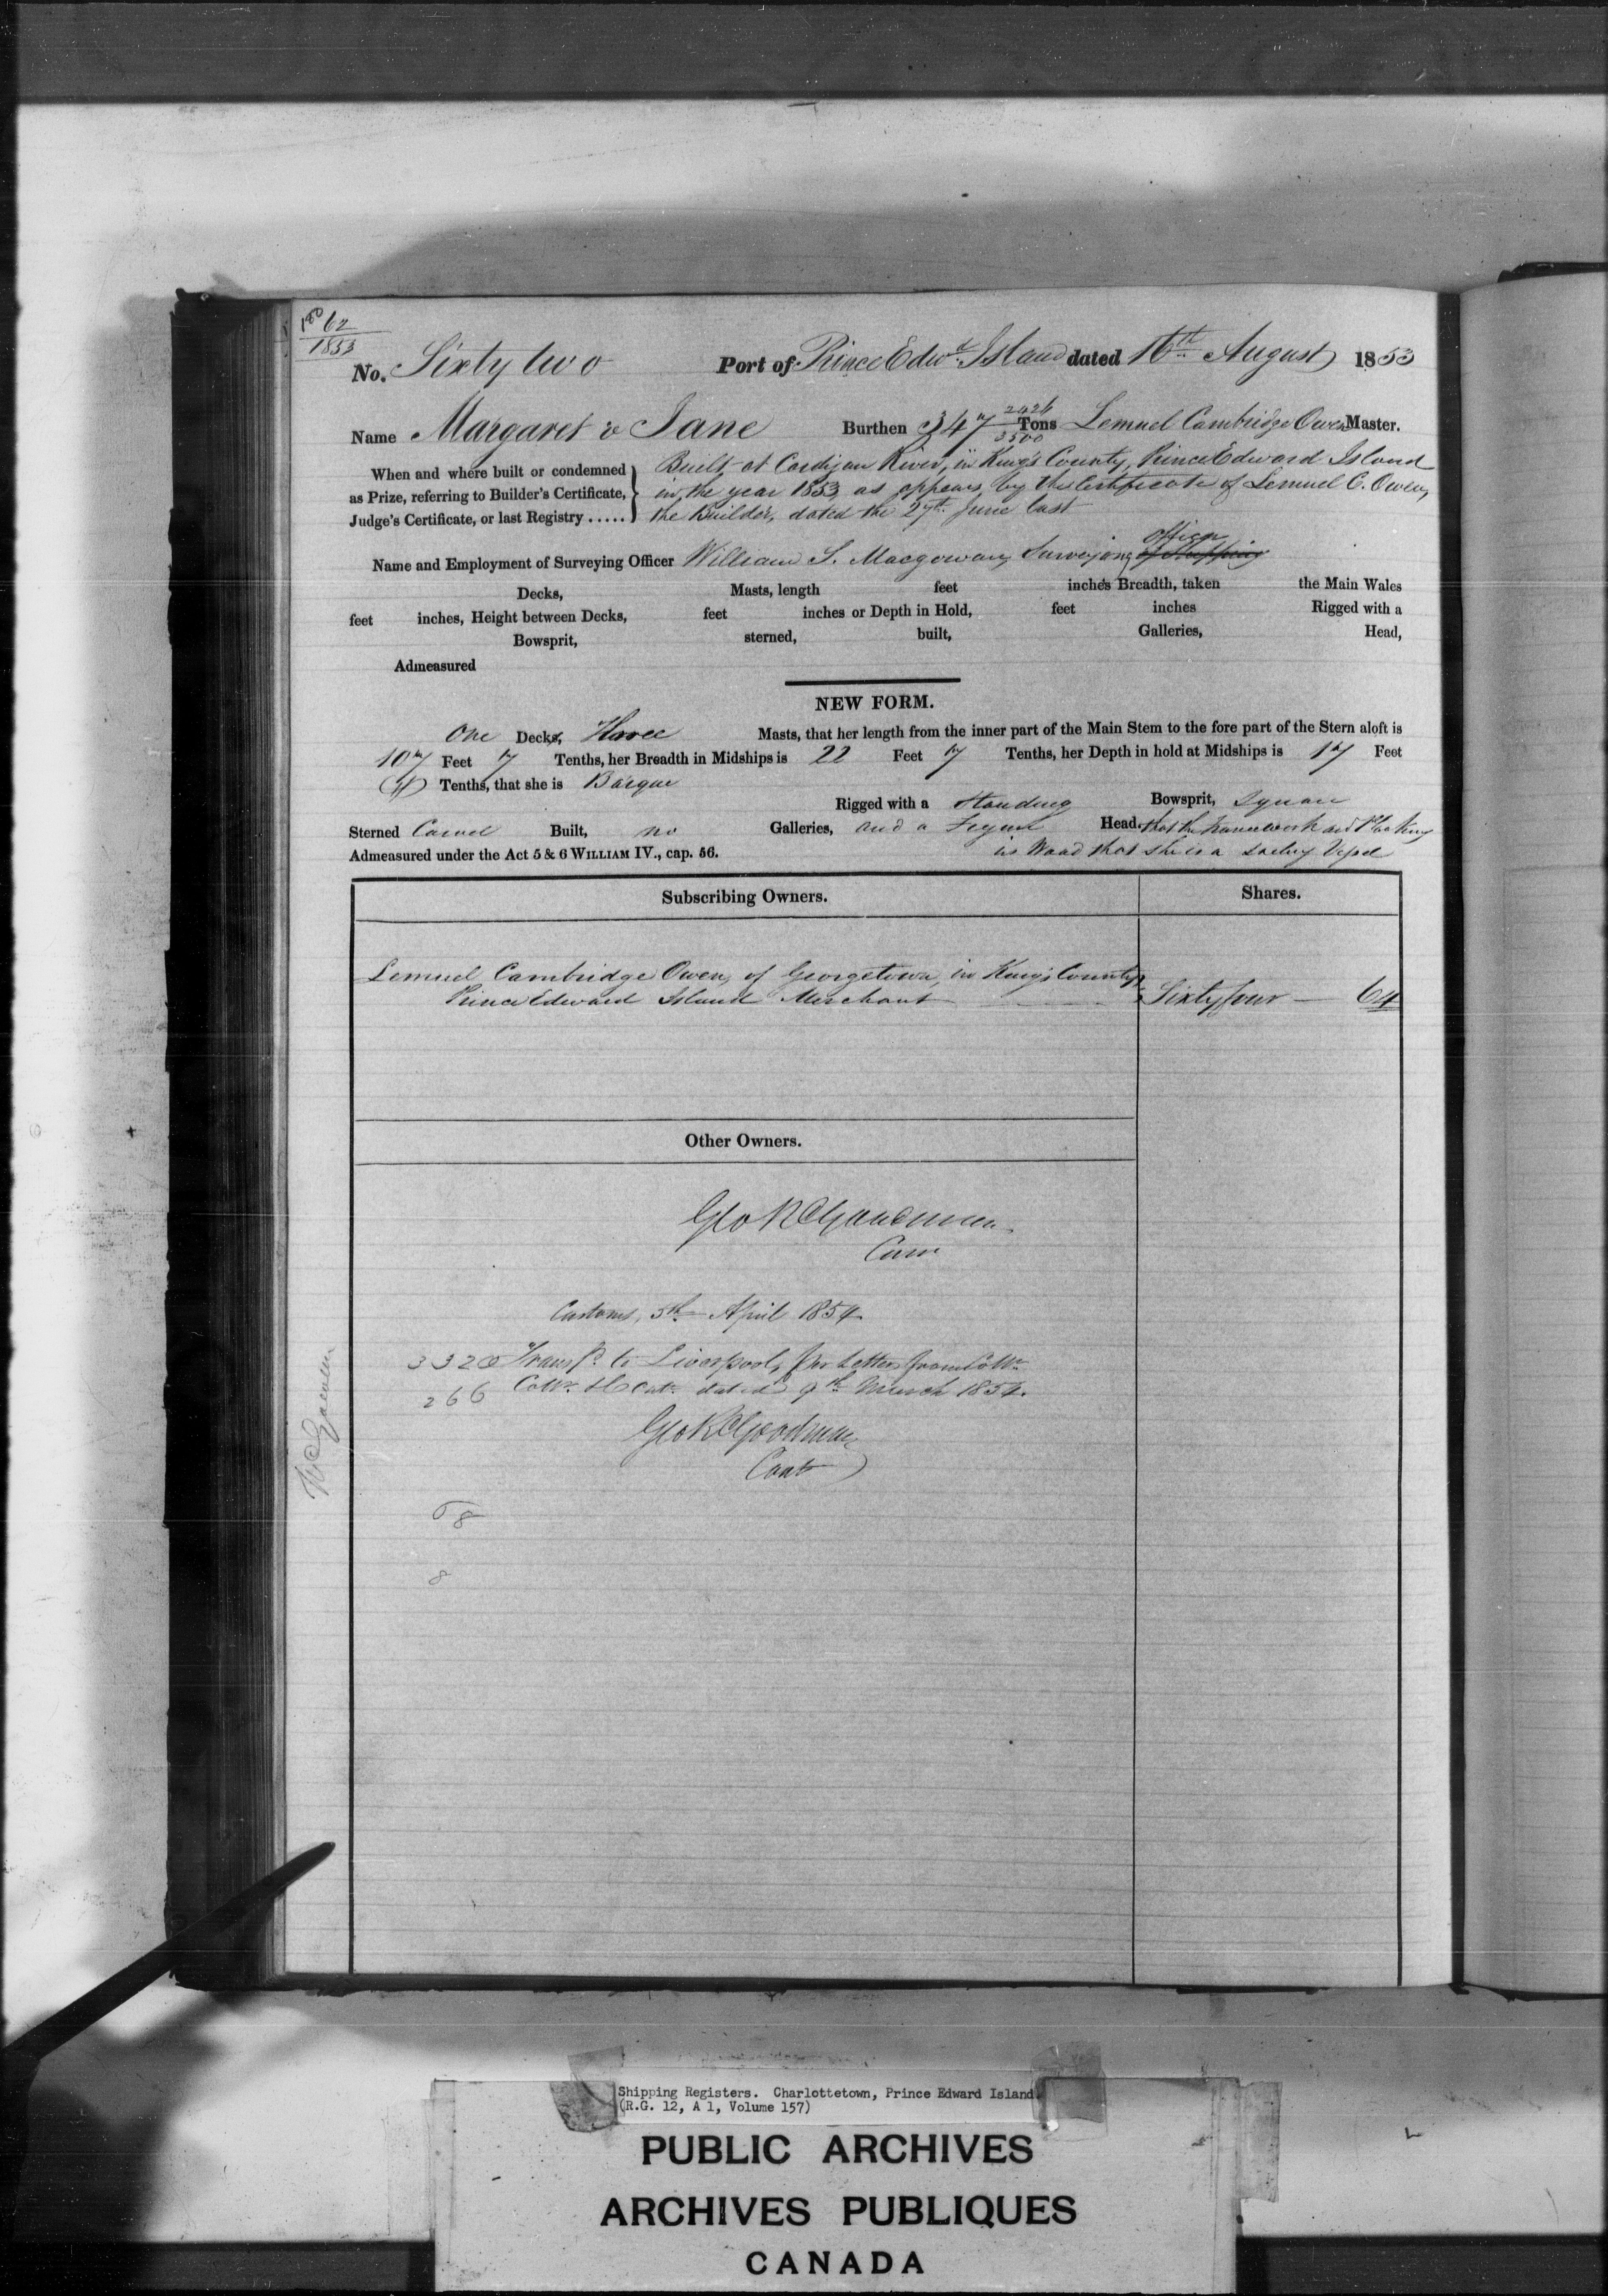 62
1853
No. Sixty two Port of Prince Edwd. Island dated 16th August 1853
Name Margaret & Jane Burthen 347 2426/3500 Tons Lemuel Cambridge Owen Master.
When and where built or condemned
as Prize, referring to Builder's Certificate,
Judge's Certificate, or last Registry .....
Built at Cardigan River, in King's County, Prince Edward Island
in the year 1853 as appears by the Certificate of Lemuel C. Owen,
the Builder, dated the 27th June last
officer
Name and Employment of Surveying Officer William S. Macgowan, Surveying of Shipping
Decks, Masts, length feet inches Breadth, taken the Main Wales
feet inches, Height between Decks, feet inches or Depth in Hold, feet inches Rigged with a
Bowsprit, sterned, built, Galleries, Head,
Admeasured
NEW FORM.
One Decks, Three Masts, that her length from the inner part of the Main Stem to the fore part of the Stern aloft is
107 Feet 7 Tenths, her Breadth in Midships is 22 Feet 7 Tenths, her Depth in hold at Midships is 17 Feet
Tenths, that she is Barque
Rigged with a Standing Bowsprit, Square
Sterned Carvel Built, no Galleries, and a Figure Head. that the Framework and Planking
Admeasured under the Act 5 & 6 WILLIAM IV., cap. 56. is Wood that she is a Sailing Vessel
Subscribing Owners. Shares.
Lemuel Cambridge Owen, of Georgetown, in King's County
Prince Edward Island Merchant Sixty four — 64
Other Owners.
Geo R Goodman
Customs, 5th April 1854
3320 Transfd. to Liverpool, per letter from
266 dated 9th March 1854.
Geo R Goodman
Cont
8
Shipping Registers. Charlottetown, Prince Edward Island
(R.G. 12, A 1, Volume 157)
PUBLIC ARCHIVES
ARCHIVES PUBLIQUES
CANADA